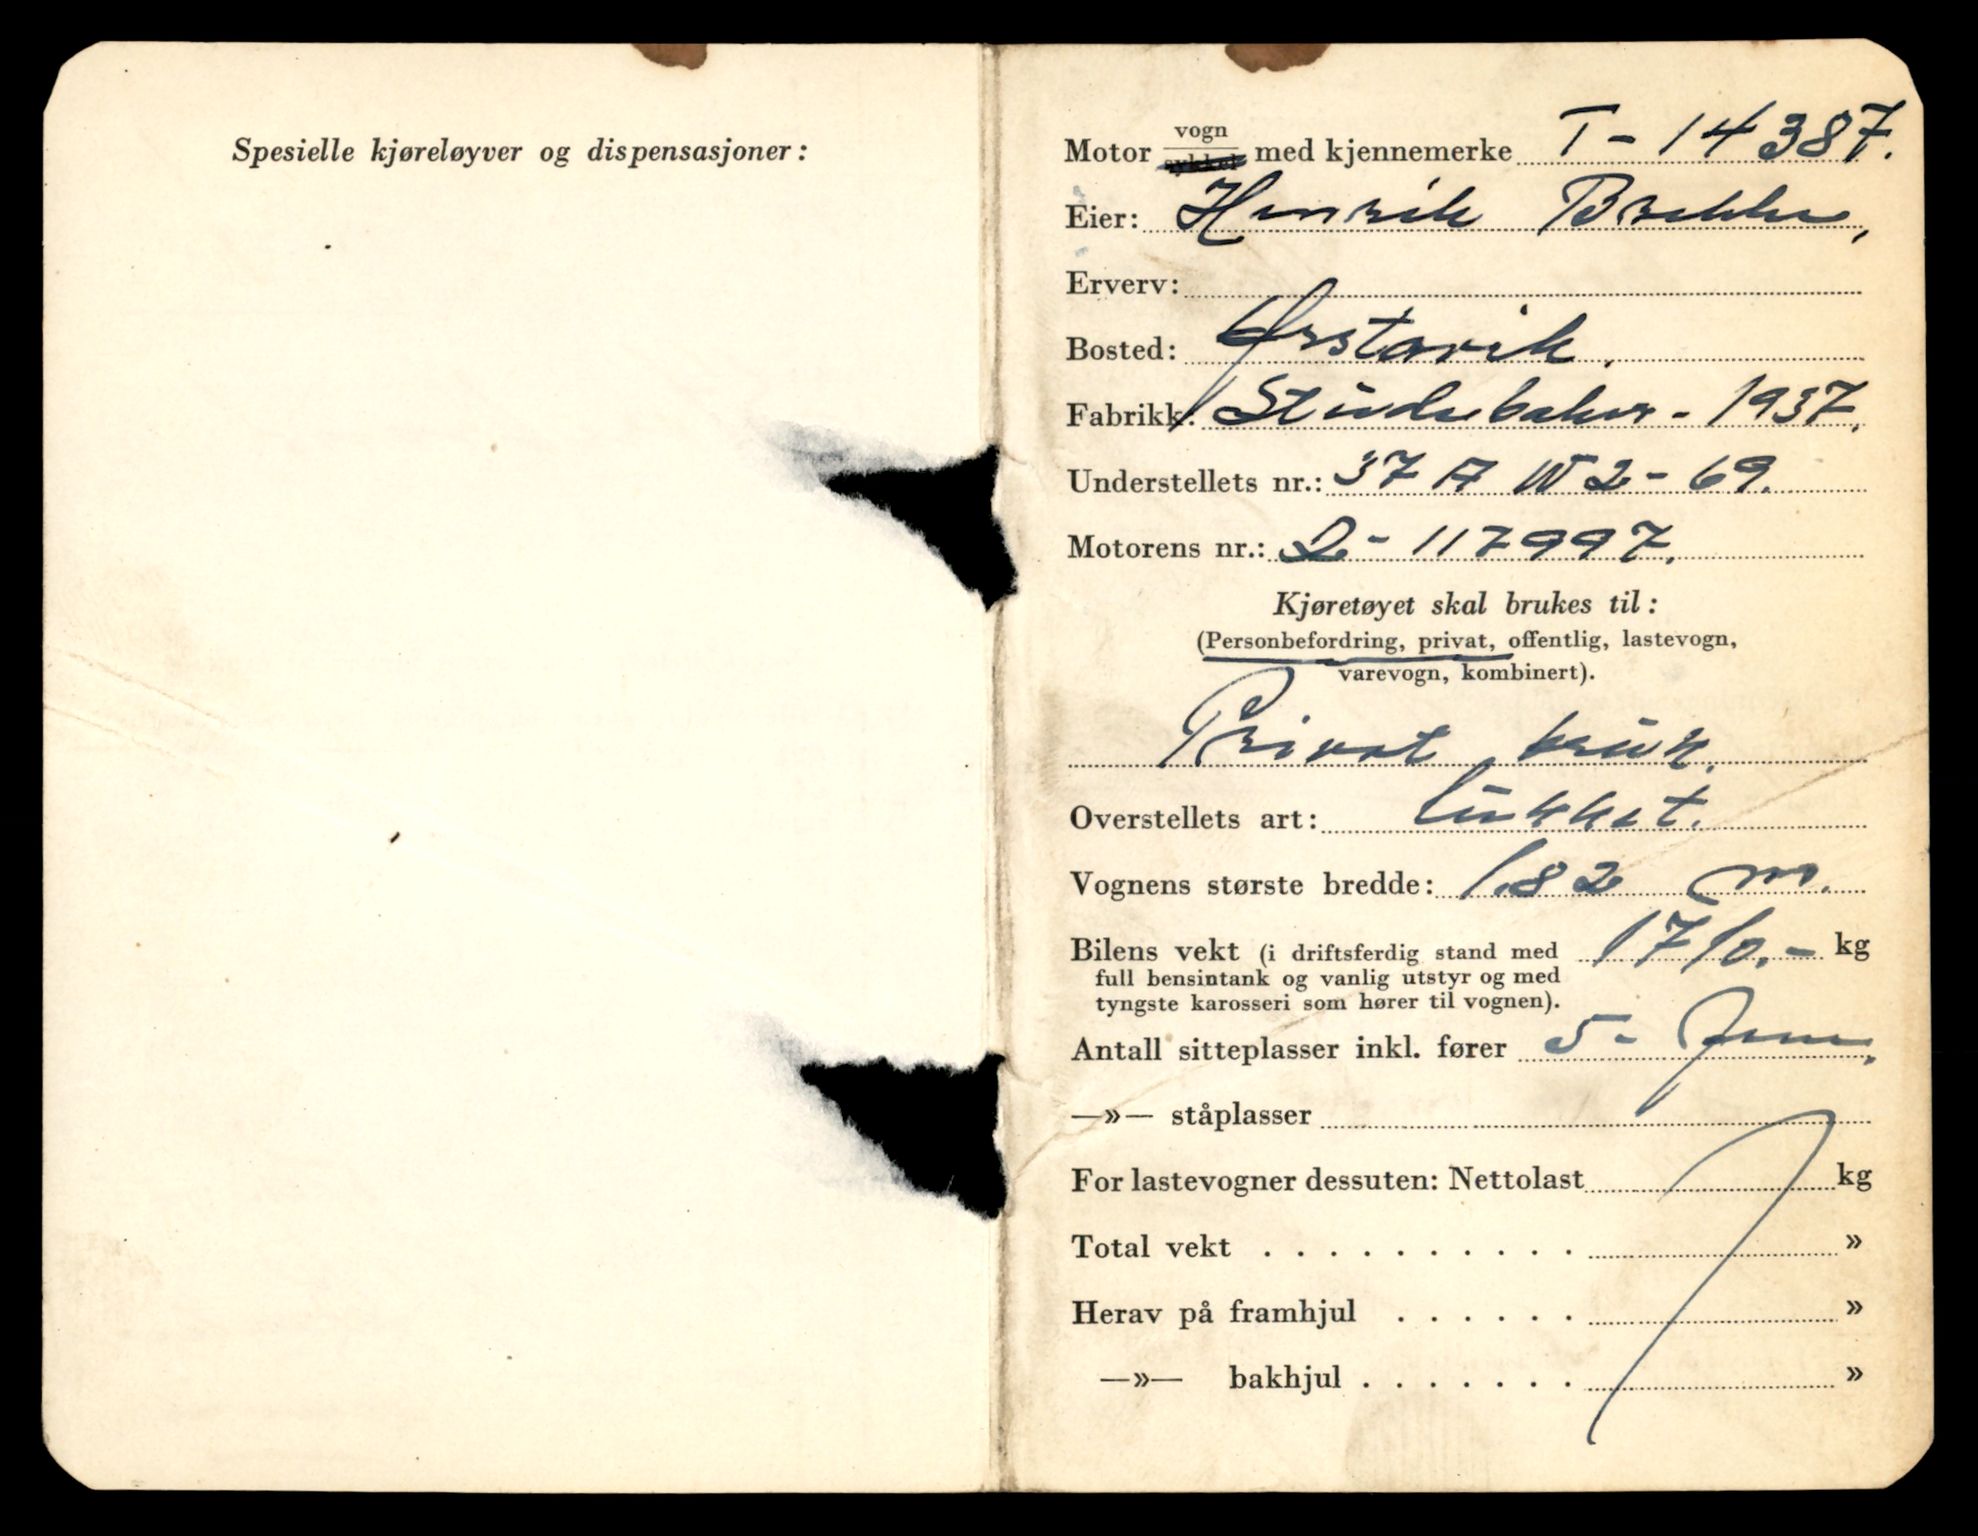 Spesielle kjøreløyver og dispensasjoner:
Motor vogn sykkel med kjennemerke T-14387.
Eier: Henrik Brekke,
Erverv:
Bosted: Ørstavik.
Fabrikk: Studebaker - 1937.
Understellets nr.: 37 A W 2 - 69.
Motorens nr.: D - 117997.
Kjøretøyet skal brukes til:
(Personbefordring, privat, offentlig, lastevogn,
varevogn, kombinert).
Privat bruk.
Overstellets art: lukket.
Vognens største bredde: 1.82 m.
Bilens vekt (i driftsferdig stand med 1710.- kg
full bensintank og vanlig utstyr og med
tyngste karosseri som hører til vognen).
Antall sitteplasser inkl. fører 5 - fem.
—»— ståplasser
For lastevogner dessuten: Nettolast kg
Total vekt . . . . . . . . . . »
Herav på framhjul . . . . . . »
—»— bakhjul . . . . . . . »